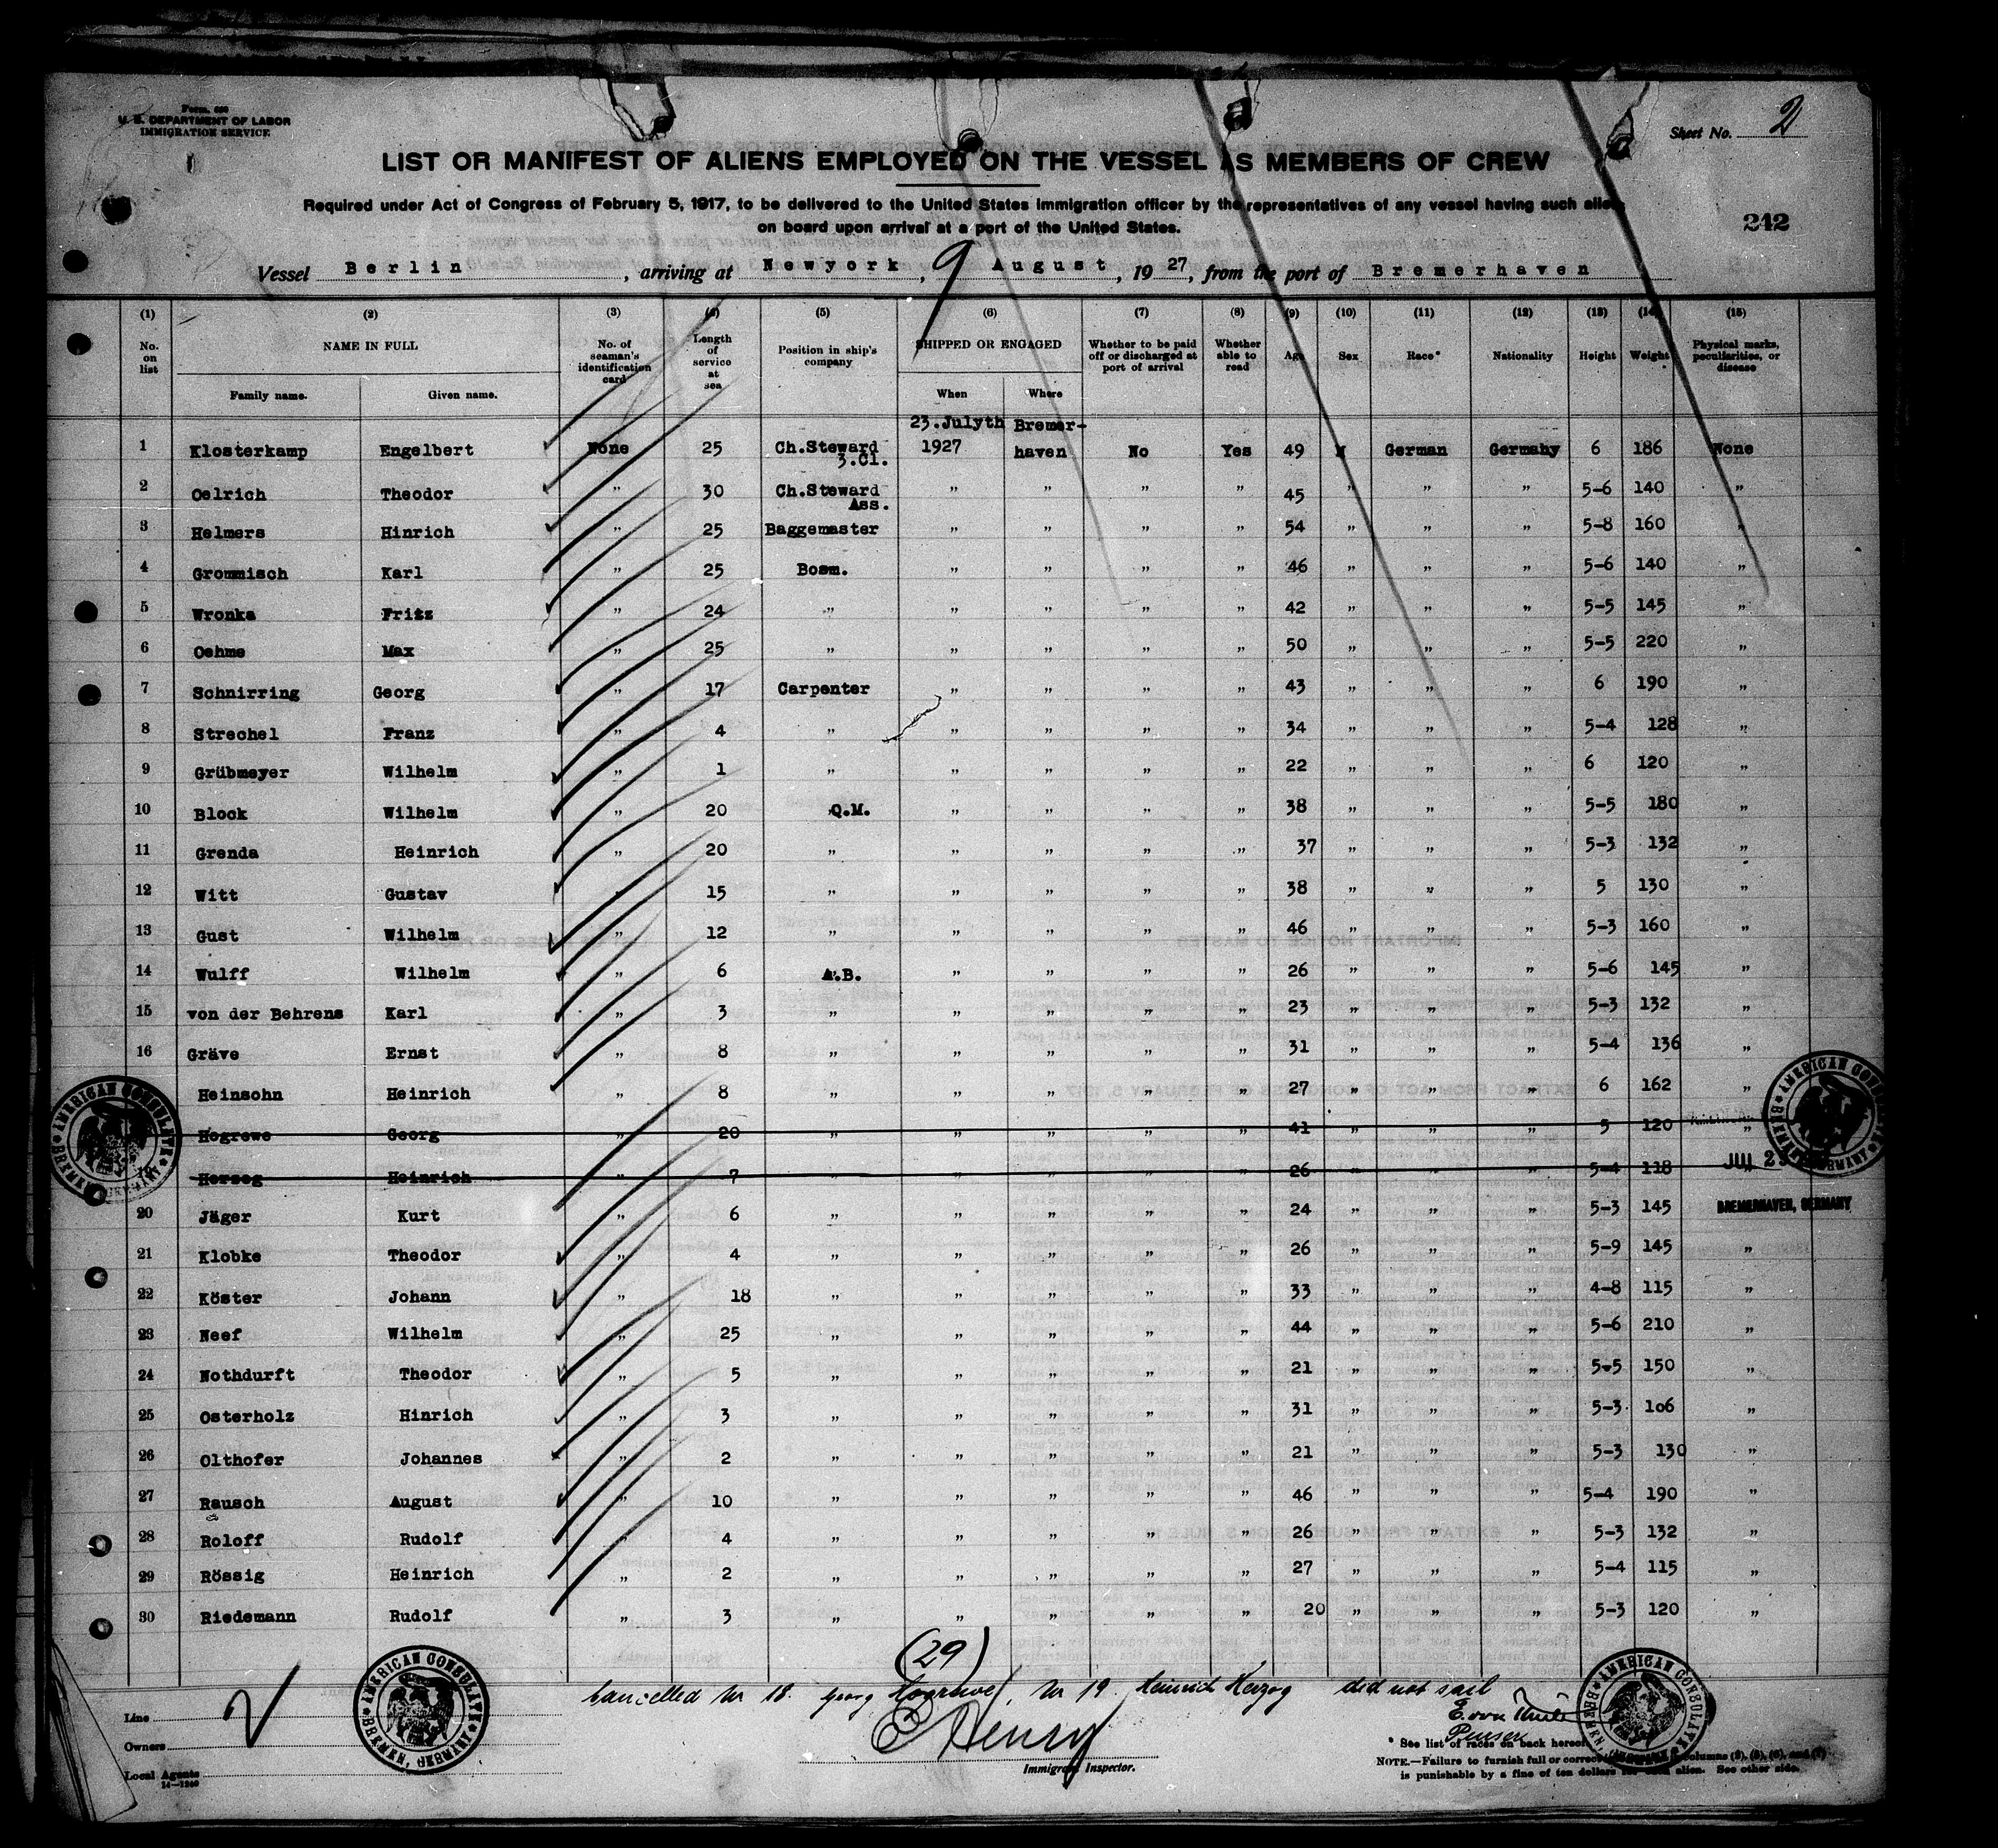 Form 680
U. S. DEPARTMENT OF LABOR
IMMIGRATION SERVICE
Sheet No. 2
LIST OR MANIFEST OF ALIENS EMPLOYED ON THE VESSEL AS MEMBERS OF CREW
Required under Act of Congress of February 5, 1917, to be delivered to the United States immigration officer by the representatives of any vessel having such aliens
on board upon arrival at a port of the United States.
242
Vessel Berlin, arriving at Newyork, 9 August, 19 27, from the port of Bremerhaven
(1) (2) (3) (4) (5) (6) (7) (8) (9) (10) (11) (12) (13) (14) (15)
No. on list NAME IN FULL Family name. Given name. No. of seaman's identification card Length of service at sea Position in ship's company SHIPPED OR ENGAGED When Where Whether to be paid off or discharged at port of arrival Whether able to read Age Sex Race* Nationality Height Weight Physical marks, peculiarities, or disease
1 Klosterkamp Engelbert None 25 Ch.Steward 3.Cl. 23.Julyth 1927 Bremer-haven No Yes 49 M German Germany 6 186 None
2 Oelrich Theodor " 30 Ch.Steward Ass. " " " " 45 " " " 5-6 140 "
3 Helmers Hinrich " 25 Baggemaster " " " " 54 " " " 5-8 160 "
4 Grommisch Karl " 25 Bosm. " " " " 46 " " " 5-6 140 "
5 Wronka Fritz " 24 " " " " " 42 " " " 5-5 145 "
6 Oehme Max " 25 " " " " " 50 " " " 5-5 220 "
7 Schnirring Georg " 17 Carpenter " " " " 43 " " " 6 190 "
8 Strechel Franz " 4 " " " " " 34 " " " 5-4 128 "
9 Grübmeyer Wilhelm " 1 " " " " " 22 " " " 6 120 "
10 Block Wilhelm " 20 Q.M. " " " " 38 " " " 5-5 180 "
11 Grenda Heinrich " 20 " " " " " 37 " " " 5-3 132 "
12 Witt Gustav " 15 " " " " " 38 " " " 5 130 "
13 Gust Wilhelm " 12 " " " " " 46 " " " 5-3 160 "
14 Wulff Wilhelm " 6 A.B. " " " " 26 " " " 5-6 145 "
15 von der Behrens Karl " 3 " " " " " 23 " " " 5-3 132 "
16 Gräve Ernst " 8 " " " " " 31 " " " 5-4 136 "
Heinsohn Heinrich " 8 " " " " " 27 " " " 6 162 "
Hogrewe Georg " 20 " " " " " 41 " " " 5 120 "
Herzog Heinrich " 7 " " " " " 26 " " " 5-4 118
JUL 23
BREMERHAVEN, GERMANY
20 Jäger Kurt " 6 " " " " " 24 " " " 5-3 145
21 Klobke Theodor " 4 " " " " " 26 " " " 5-9 145 "
22 Köster Johann " 18 " " " " " 33 " " " 4-8 115 "
23 Neef Wilhelm " 25 " " " " " 44 " " " 5-6 210 "
24 Nothdurft Theodor " 5 " " " " " 21 " " " 5-5 150 "
25 Osterholz Hinrich " 3 " " " " " 31 " " " 5-3 106 "
26 Olthofer Johannes " 2 " " " " " 21 " " " 5-3 130 "
27 Rausch August " 10 " " " " " 46 " " " 5-4 190 "
28 Roloff Rudolf " 4 " " " " " 26 " " " 5-3 132 "
29 Rössig Heinrich " 2 " " " " " 27 " " " 5-4 115 "
30 Riedemann Rudolf " 3 " " " " " 20 " " " 5-3 120 "
(29)
Cancelled Nr 18. Georg Hogrewe, Nr 19 Heinrich Herzog did not sail
E. von
E Henry
Immigrant Inspector.
Line
Owners
Local Agents
14—1240
* See list of races on back hereof
NOTE.—Failure to furnish full or correct columns (2), (5), (6), and (7)
is punishable by a fine of ten dollars for each alien. See other side.
AMERICAN CONSULATE BREMEN, GERMANY
AMERICAN CONSULATE BREMEN, GERMANY
AMERICAN CONSULATE BREMEN, GERMANY
AMERICAN CONSULATE BREMEN, GERMANY